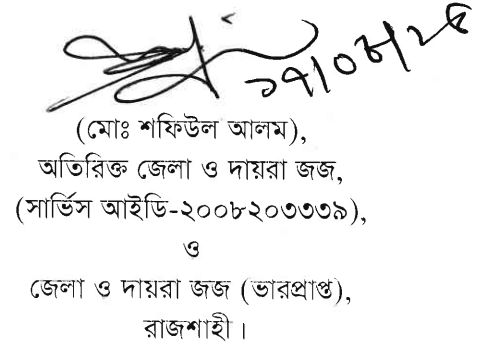 ১৭/০৮/২৫
(মোঃ শফিউল আলম),
অতিরিক্ত জেলা ও দায়রা জজ,
(সার্ভিস আইডি-২০০৮২০৩৩৩৯),
ও
জেলা ও দায়রা জজ (ভারপ্রাপ্ত),
রাজশাহী।